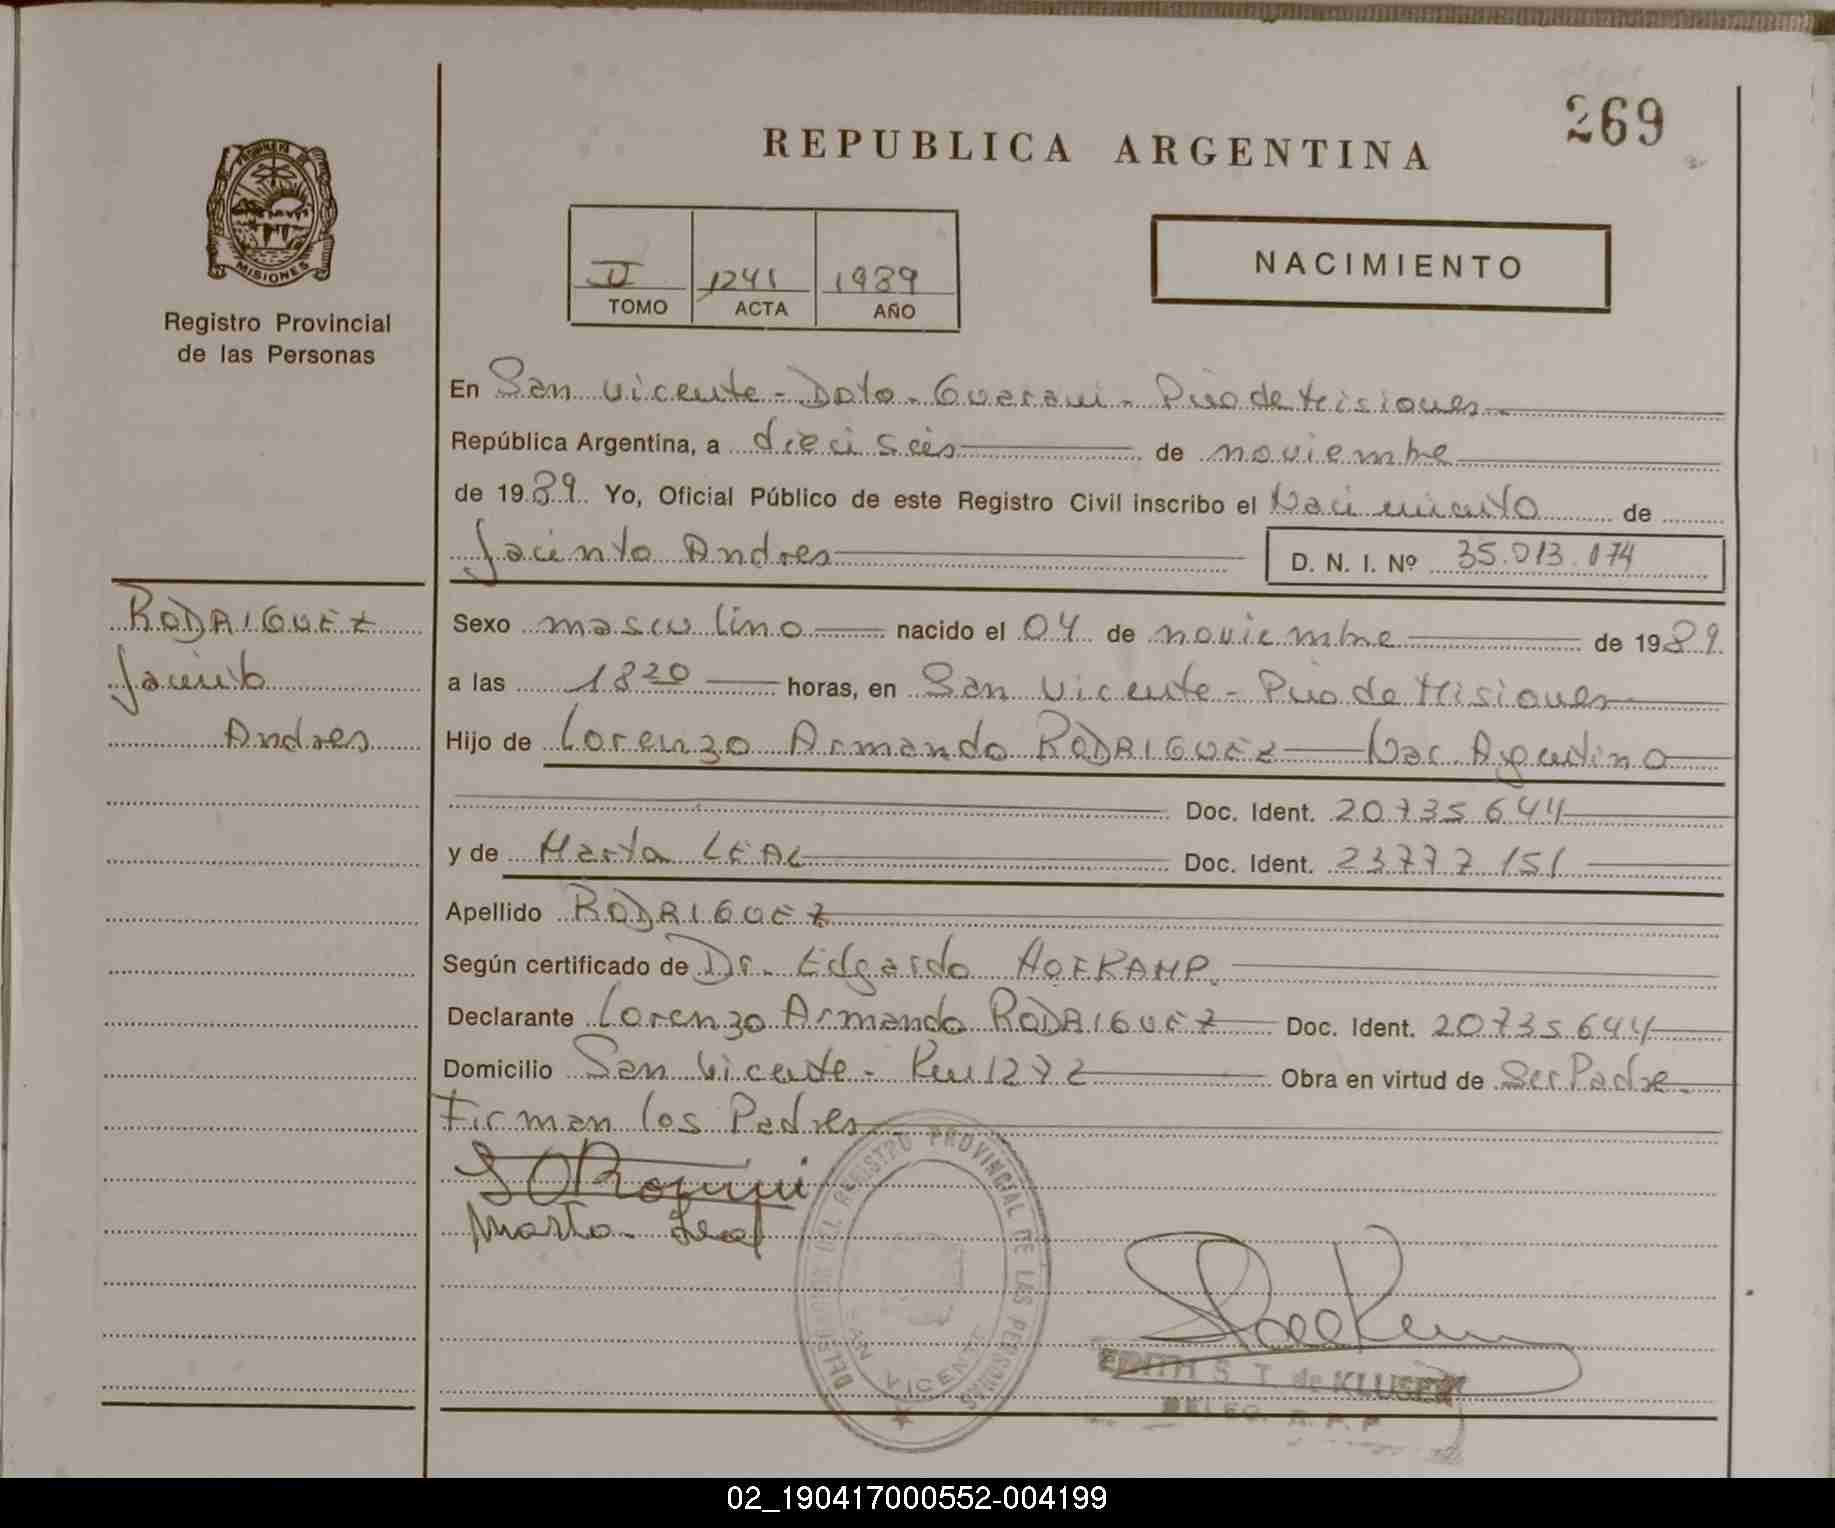 269
REPUBLICA ARGENTINA
PROVINCIA DE
MISIONES
Registro Provincial
de las Personas
II 1241 1989
TOMO ACTA AÑO
NACIMIENTO
En San Vicente - Dpto. Guarani - Pcia de Misiones
República Argentina, a dieciseis de noviembre
de 1989. Yo, Oficial Público de este Registro Civil inscribo el Nacimiento de
Jacinto Andres D. N. I. Nº 35.013.074
RODRIGUEZ
Jacinto
Andres
Sexo masculino nacido el 04 de noviembre de 1989.
a las 18 20 horas, en San Vicente - Pcia de Misiones
Hijo de Lorenzo Armando RODRIGUEZ Nac. Argentino
Doc. Ident. 20735644
y de Marta LEAL Doc. Ident. 23777151
Apellido RODRIGUEZ
Según certificado de Dr. Edgardo HOFKAMP.
Declarante Lorenzo Armando RODRIGUEZ Doc. Ident. 20735644
Domicilio San Vicente - Km 1272 Obra en virtud de Ser Padre.
Firman los Padres
Marta Leal
DELEGACION DEL REGISTRO PROVINCIAL DE LAS PERSONAS
SAN VICENTE
EDITH S. T. de KLUSER
DELEG. R. P. P
02_190417000552-004199